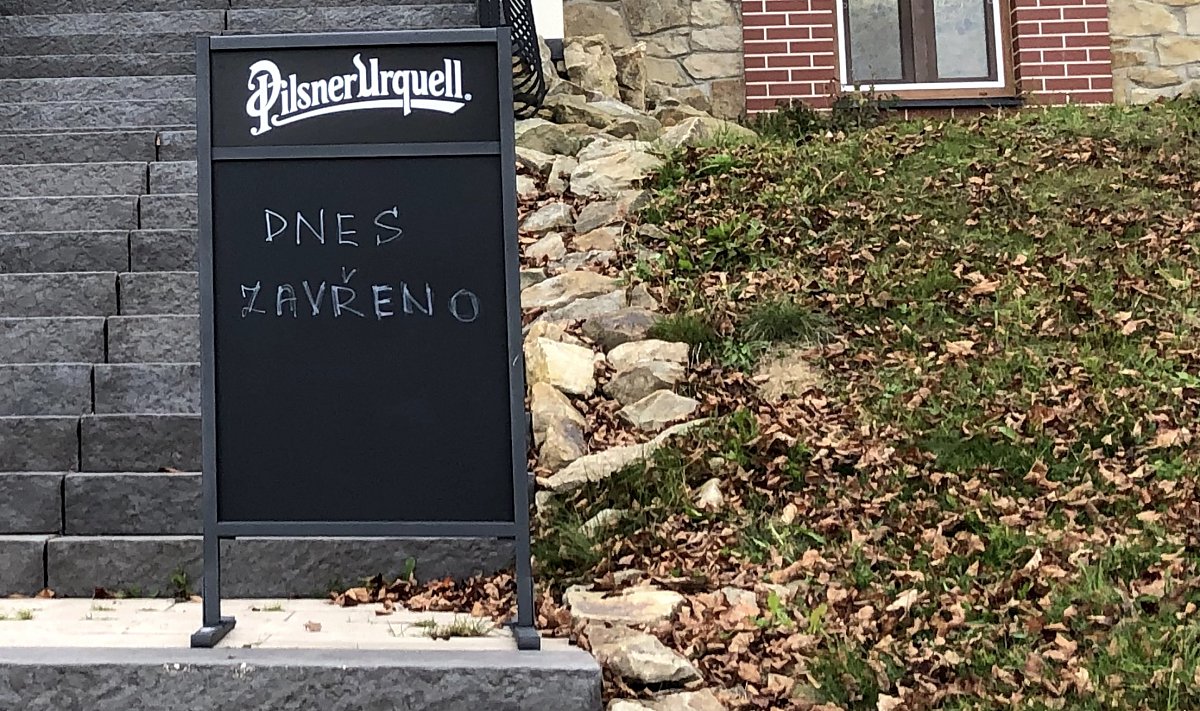 Pilsner Urquell.
DNES
ZAVŘENO